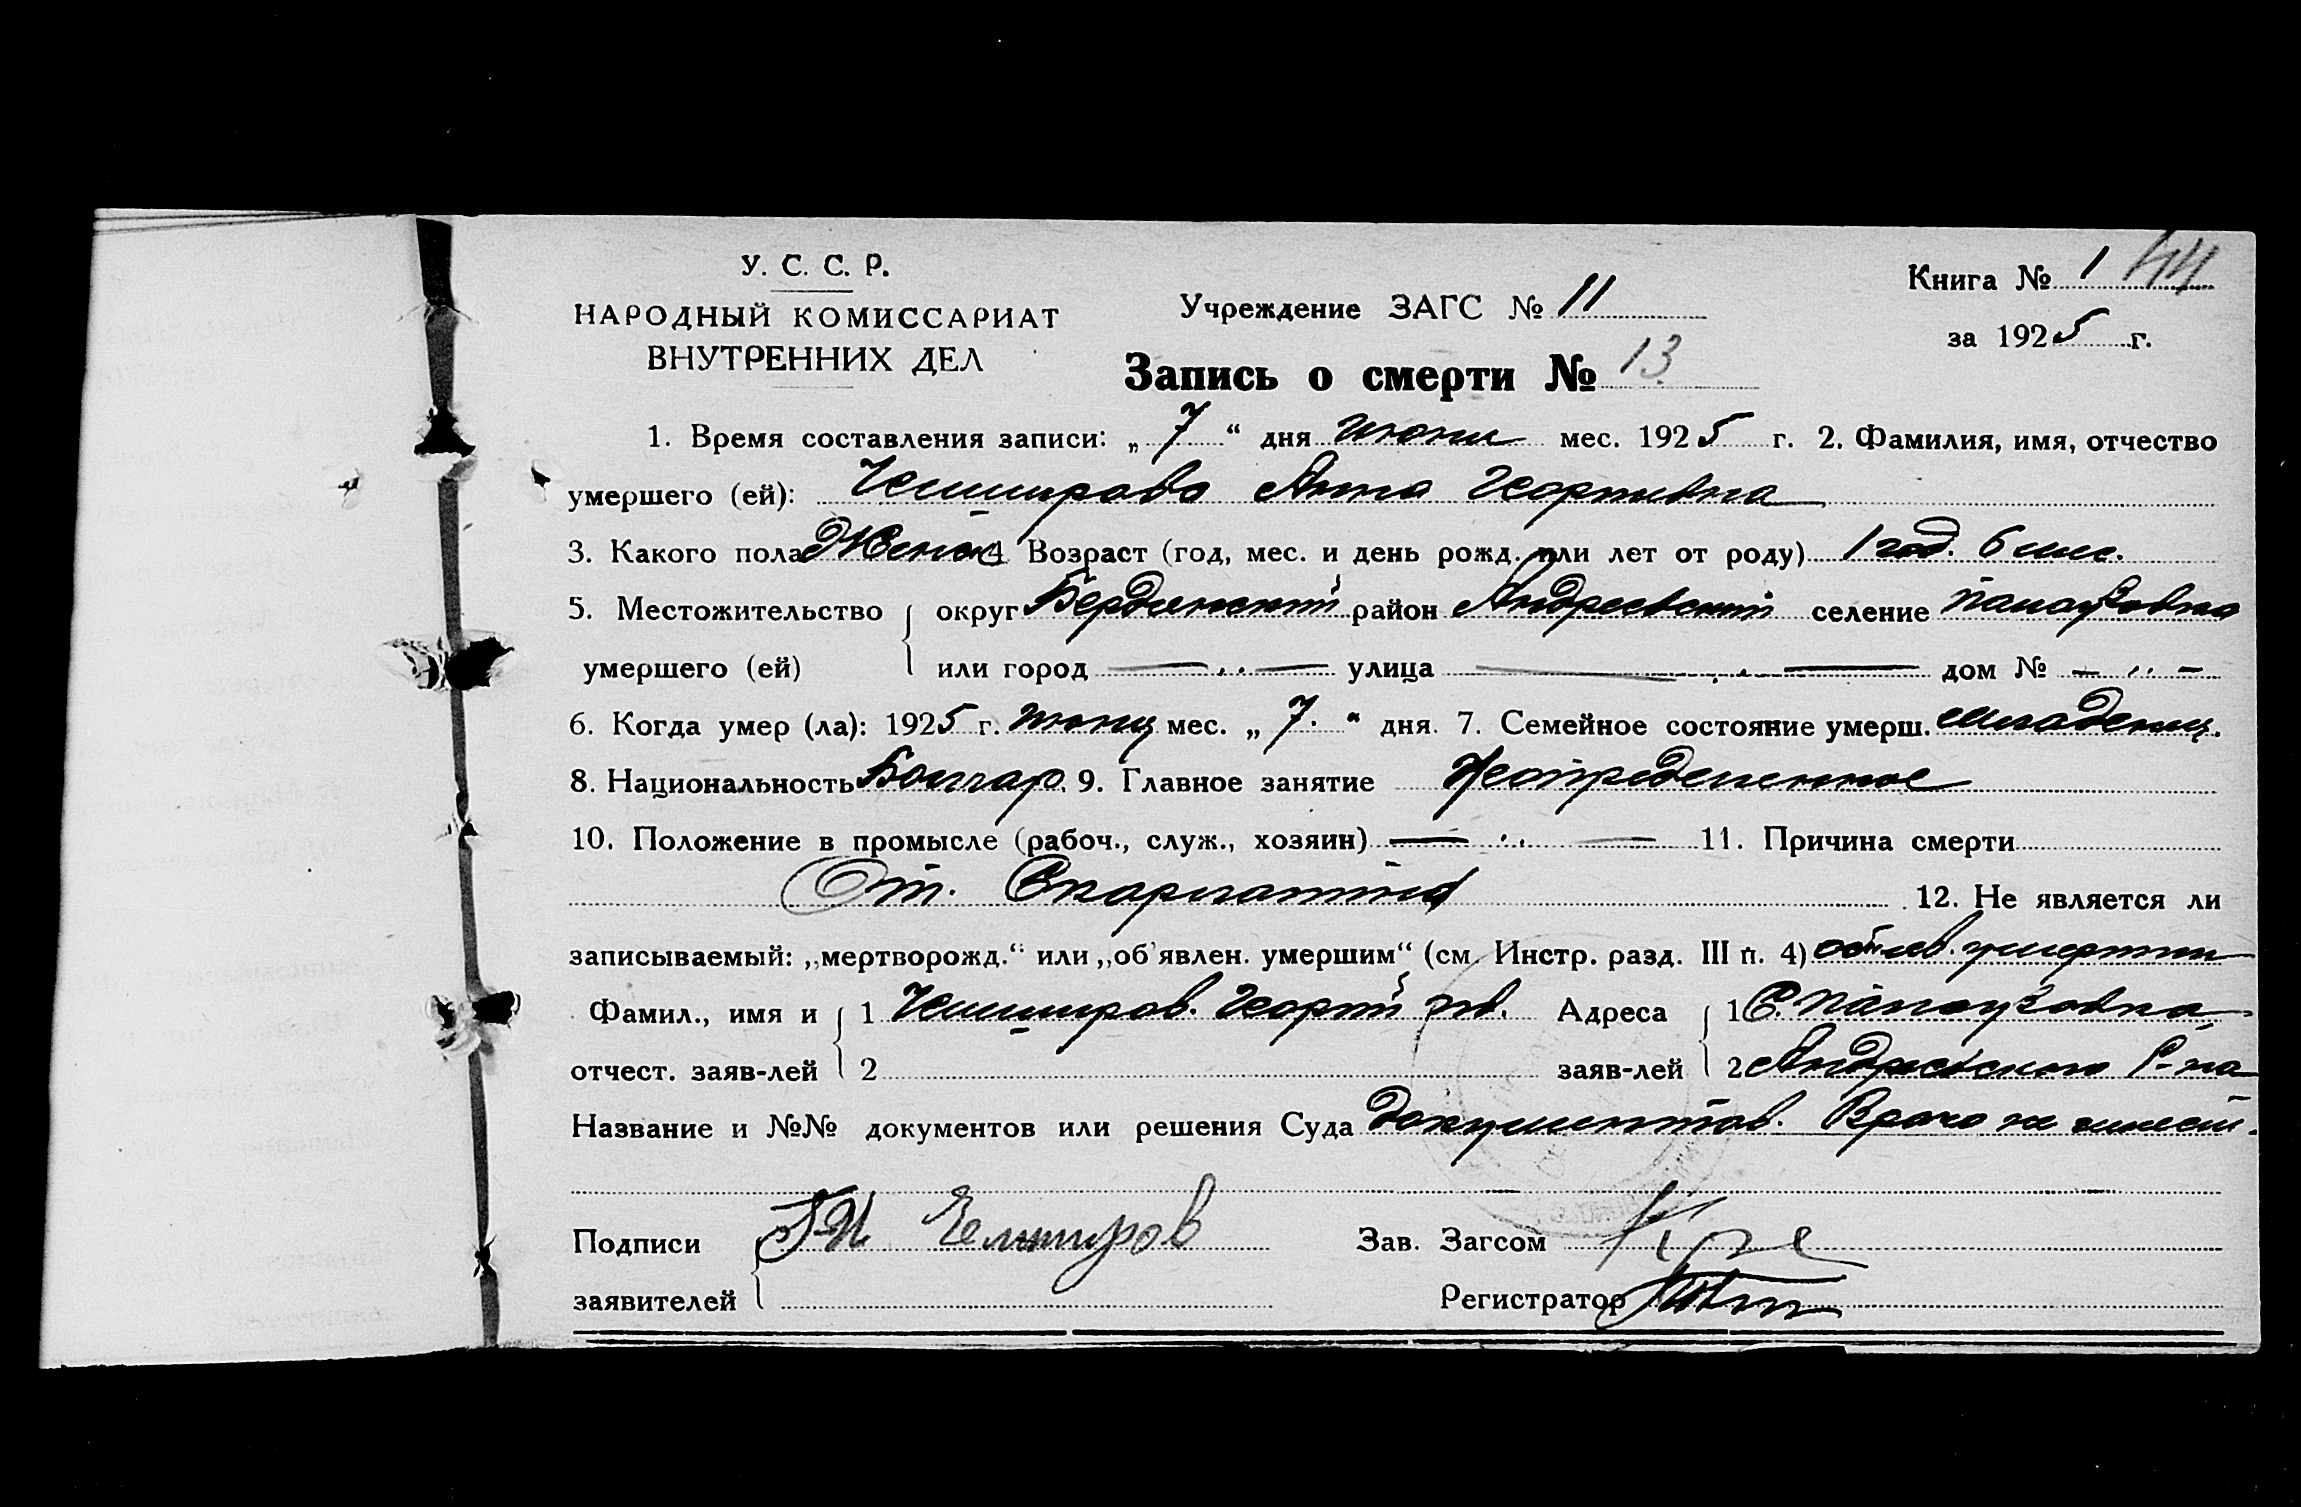 У. С. С. Р.
НАРОДНЫЙ КОМИССАРИАТ
ВНУТРЕННИХ ДЕЛ
Учреждение ЗАГС № 11
Книга № 1 44
за 1925 г.
Запись о смерти № 13
1. Время составления записи: „7“ дня июни мес. 1925 г. 2. Фамилия, имя, отчество
умершего (ей): Чешмирова Анна Георгиевна
3. Какого пола Женск 4 Возраст (год, мес. и день рожд. или лет от роду) 1 год. 6 мес.
5. Местожительство округ Бердянский район Андреевский селение Панаузовка
умершего (ей) или город — „ — улица — „ — дом № — „ —
6. Когда умер (ла): 1925 г. июни мес. „7.“ дня. 7. Семейное состояние умерш. Младенец.
8. Национальность Болгар. 9. Главное занятие Неопределенное
10. Положение в промысле (рабоч., служ., хозяин) — „ — 11. Причина смерти
От. Скарлатина
12. Не является ли
записываемый: „мертворожд.“ или „об'явлен. умершим“ (см. Инстр. разд. III п. 4) об'яв. умершим
Фамил., имя и 1 Чешмиров. Георгий Ив. Адреса 1 С. Панаузовка,
отчест. заяв-лей 2 заяв-лей 2 Андреевского Р-на
Название и №№ документов или решения Суда документов. Врача не имеет.
Подписи Г И Чешмиров Зав. Загсом
заявителей Регистратор